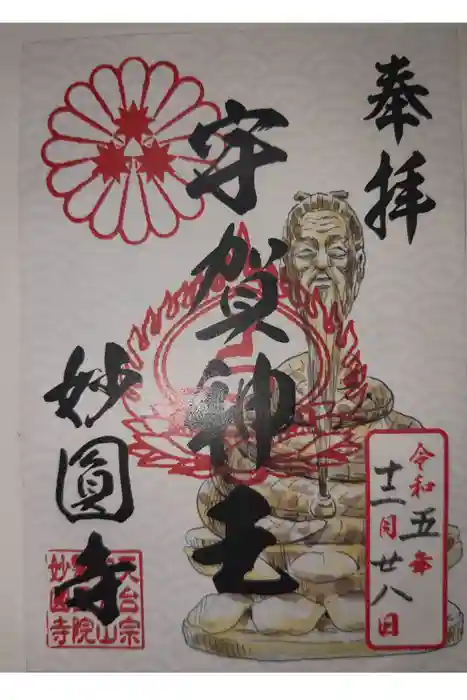 奉拝
宇賀神王
妙圓寺
令和五年
十二月廿八日
天台宗
妙圓寺